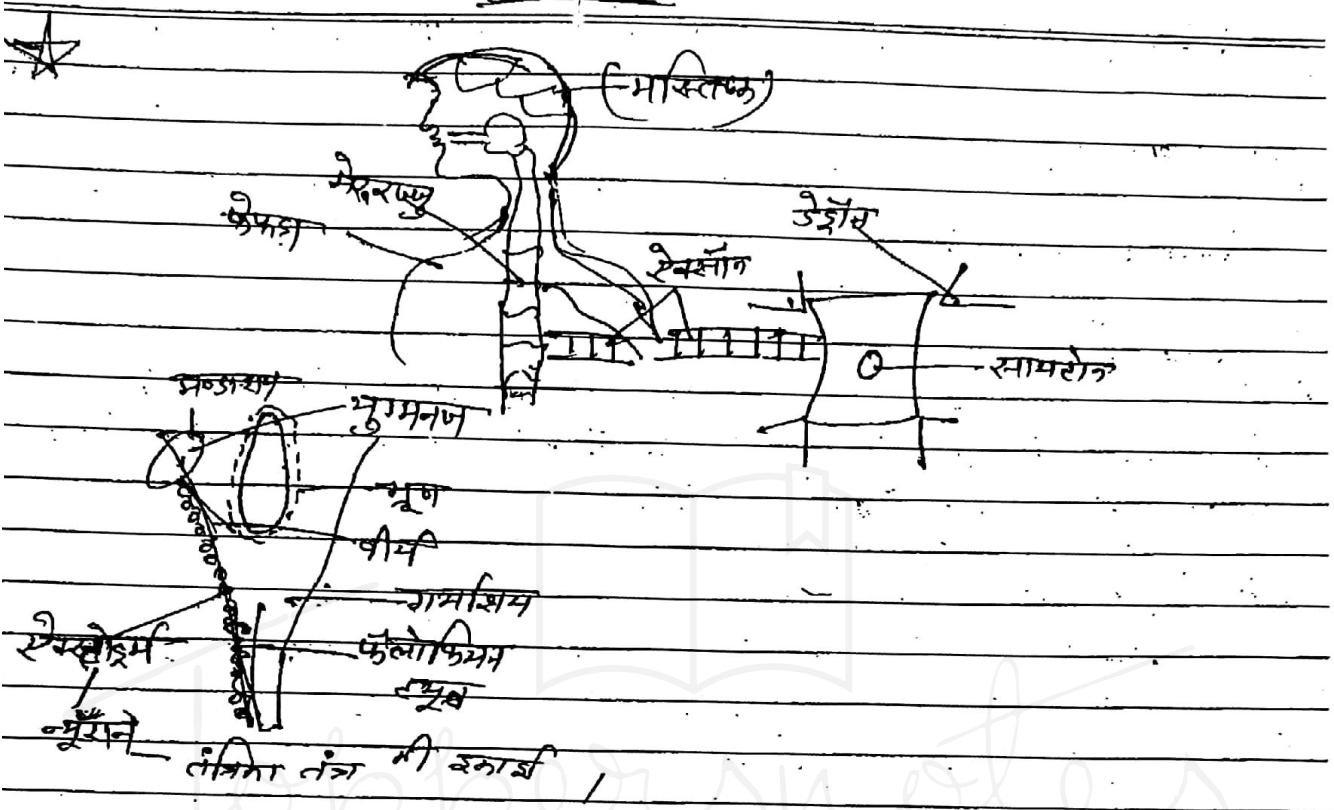 (मस्तिष्क)
मेरुरज्जु
फेफड़ा
डेड्रॉन
ऐक्सॉन
सायटोन
अण्डाशय
युग्मनज
भ्रूण
वीर्य
गर्भाशय
ऐक्टोडर्म
फैलोपियन
ट्यूब
न्यूरॉन
तंत्रिका तंत्र की इकाई
Toppersnotes